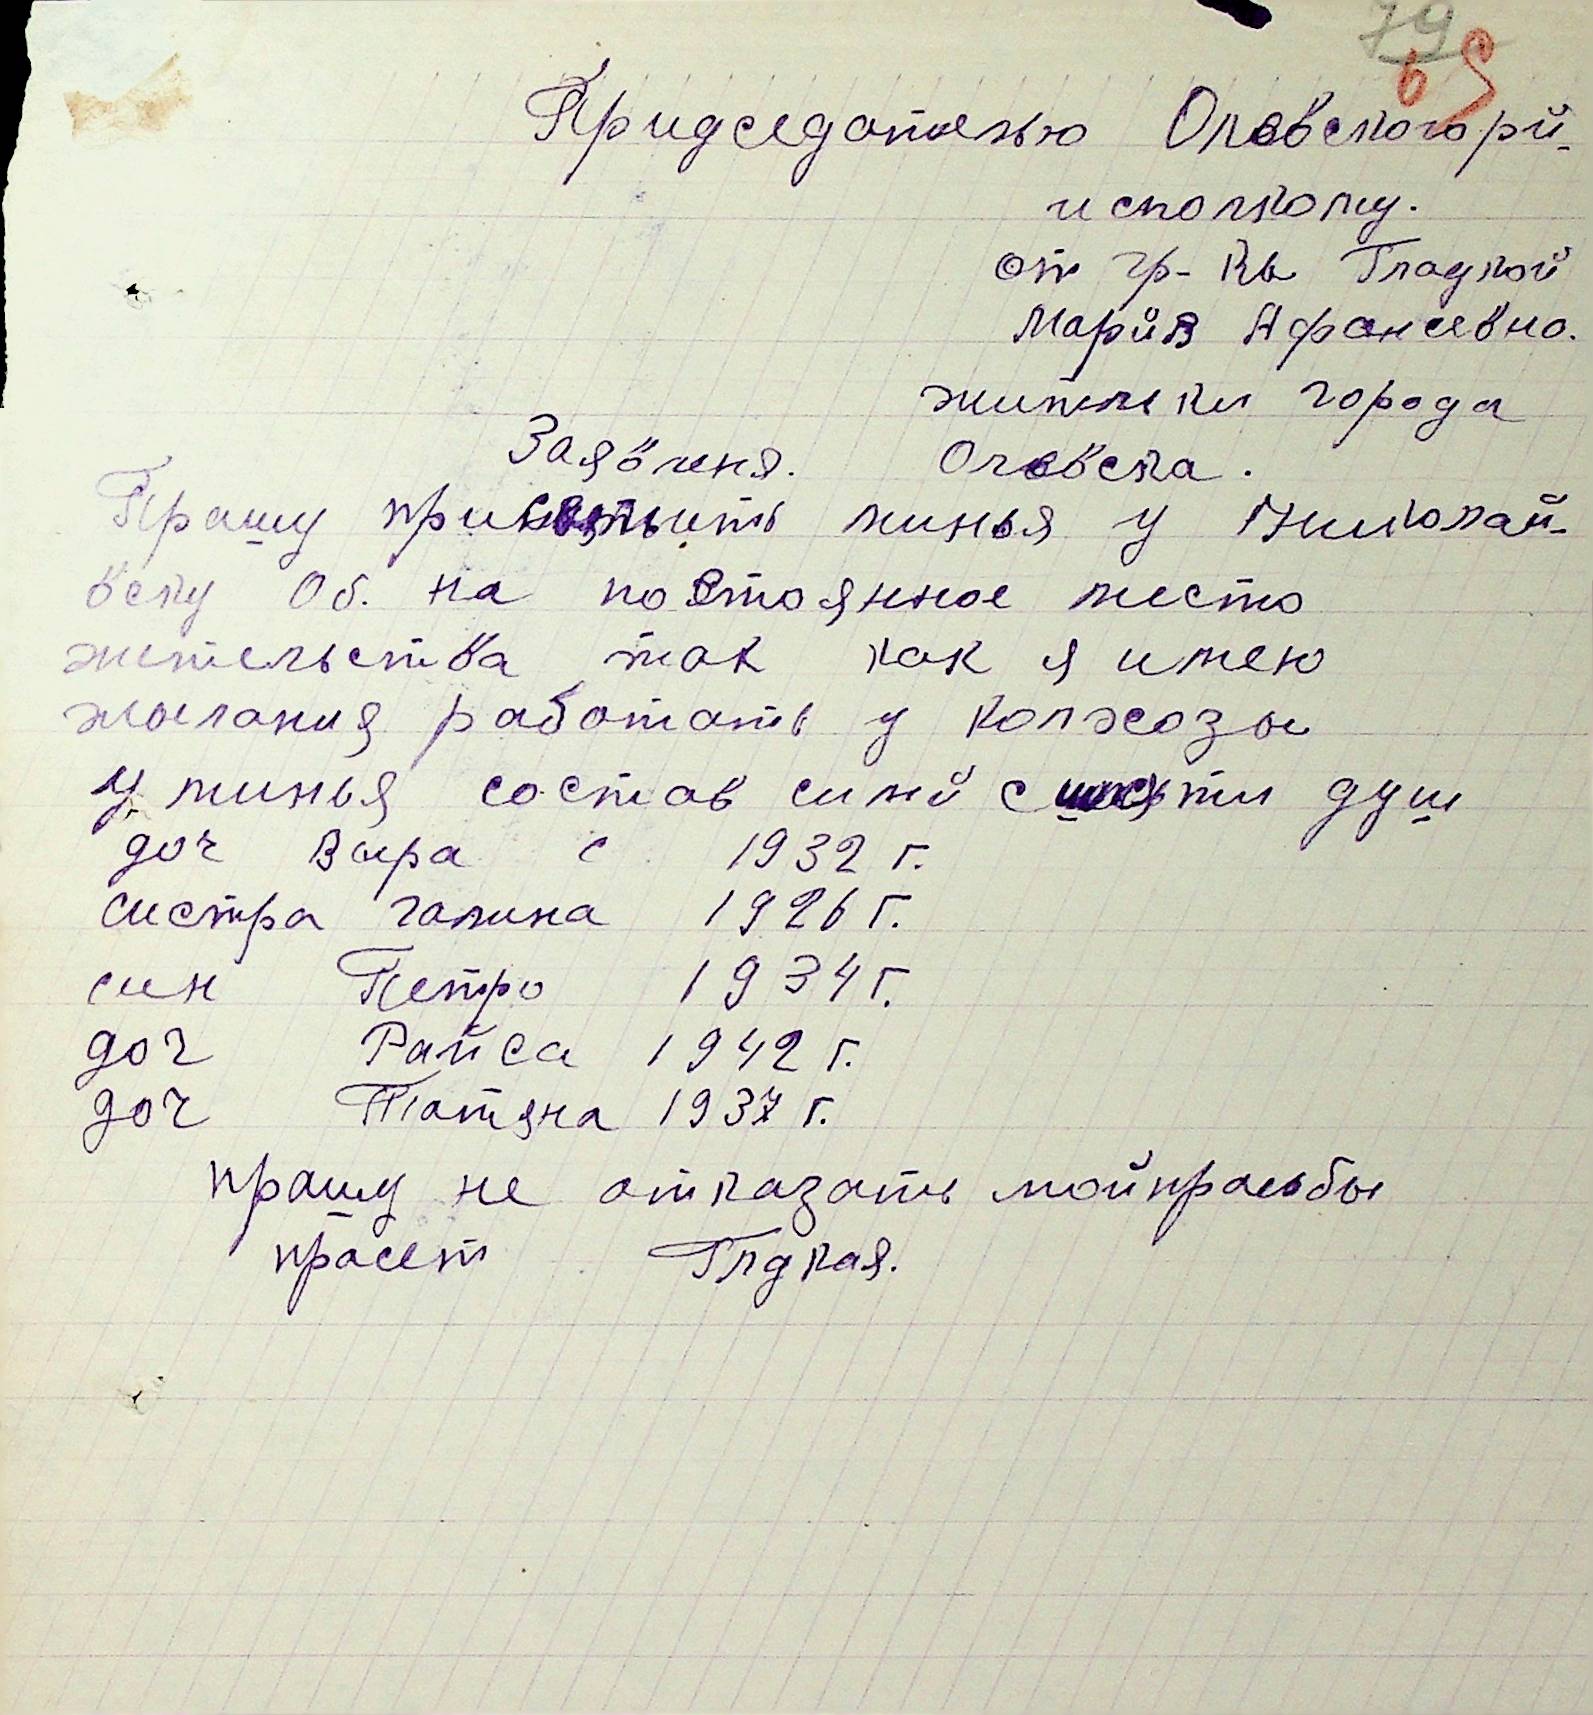 79
65
Придседателью Олевскогорй-
исполкому.
от гр-кы Гладкой
Марйя Афансевно.
жительки города
Заявленя. Олевска.
Прашу приселить минья у Николай-
вску Об. на постоянное место
жительства так как я имею
жылания работать у колхозы
у минья состав симй с шысьти душ
доч Выра с 1932 г.
систра галина 1926 г.
син Петро 1934 г.
доч Райса 1942 г.
доч Татяна 1937 г.
прашу не отказать мойпрасьбы
прасет Глдкая.